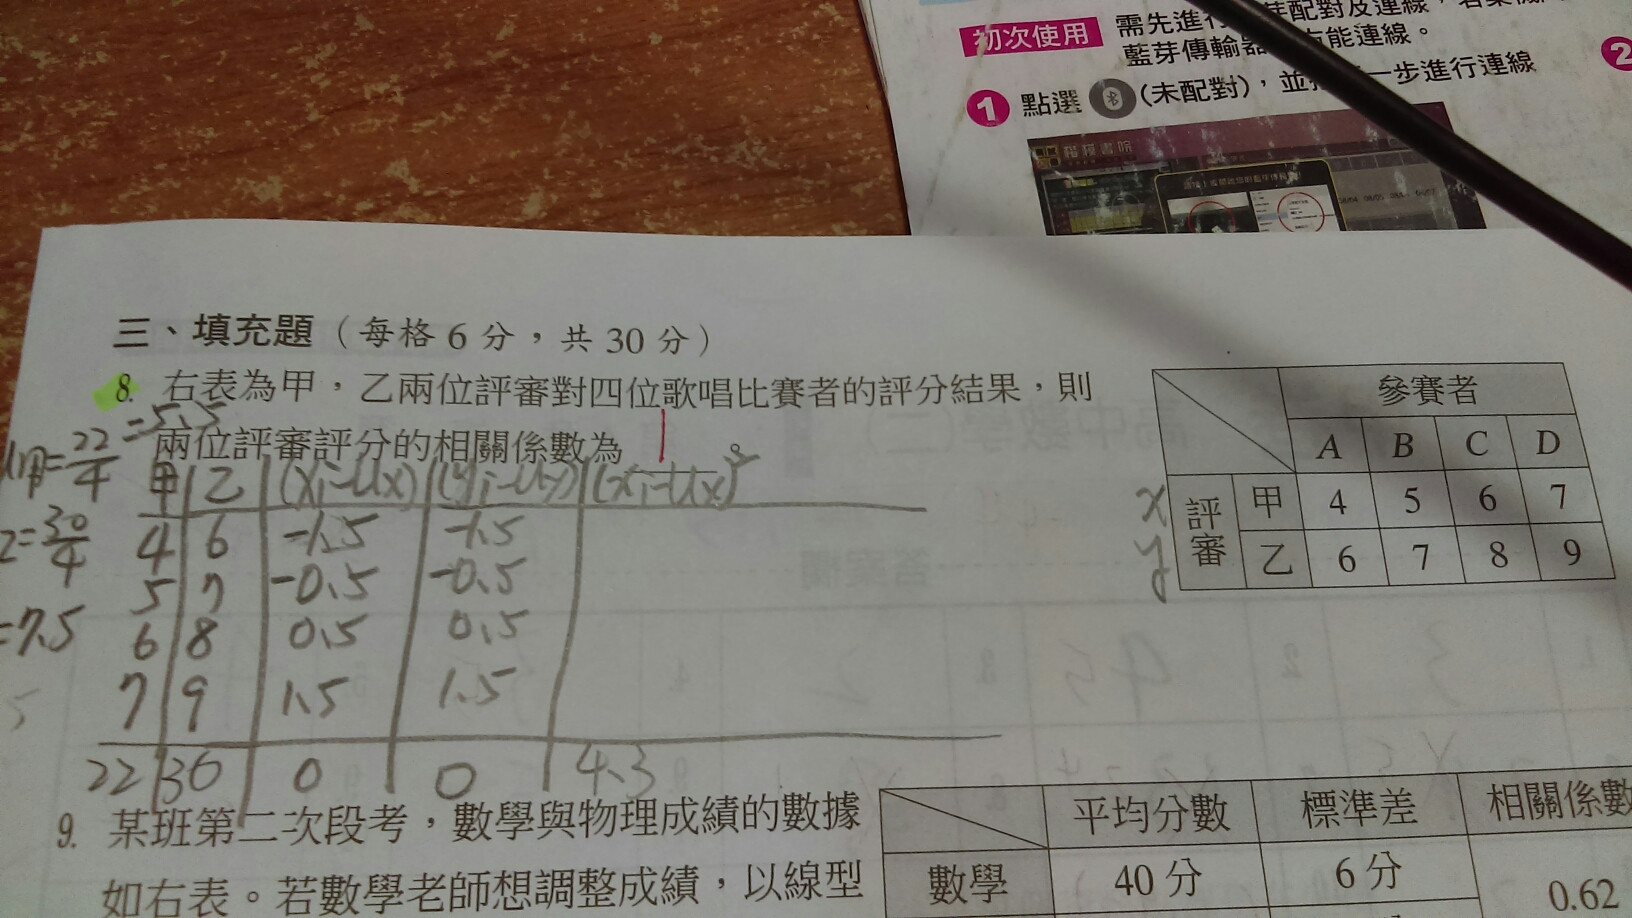 初次使用
需先進行
配對及連線,若
藍芽傳輸器
方能連線。
1 點選 (未配對),並
一步進行連線
2
三、填充題(每格 6 分,共 30 分)
8. 右表為甲,乙兩位評審對四位歌唱比賽者的評分結果,則
兩位評審評分的相關係數為 1
=22/4 =5.5
=30/4
=7.5
甲 乙 (xi-ux) (yi-uy) (xi-ux)²
4 6 -1.5 -1.5
5 7 -0.5 -0.5
6 8 0.5 0.5
7 9 1.5 1.5
22 30 0 0 4.3
參賽者
A B C D
評審
x 甲 4 5 6 7
y 乙 6 7 8 9
9. 某班第二次段考,數學與物理成績的數據
如右表。若數學老師想調整成績,以線型
平均分數 標準差 相關係數
數學 40 分 6 分 0.62